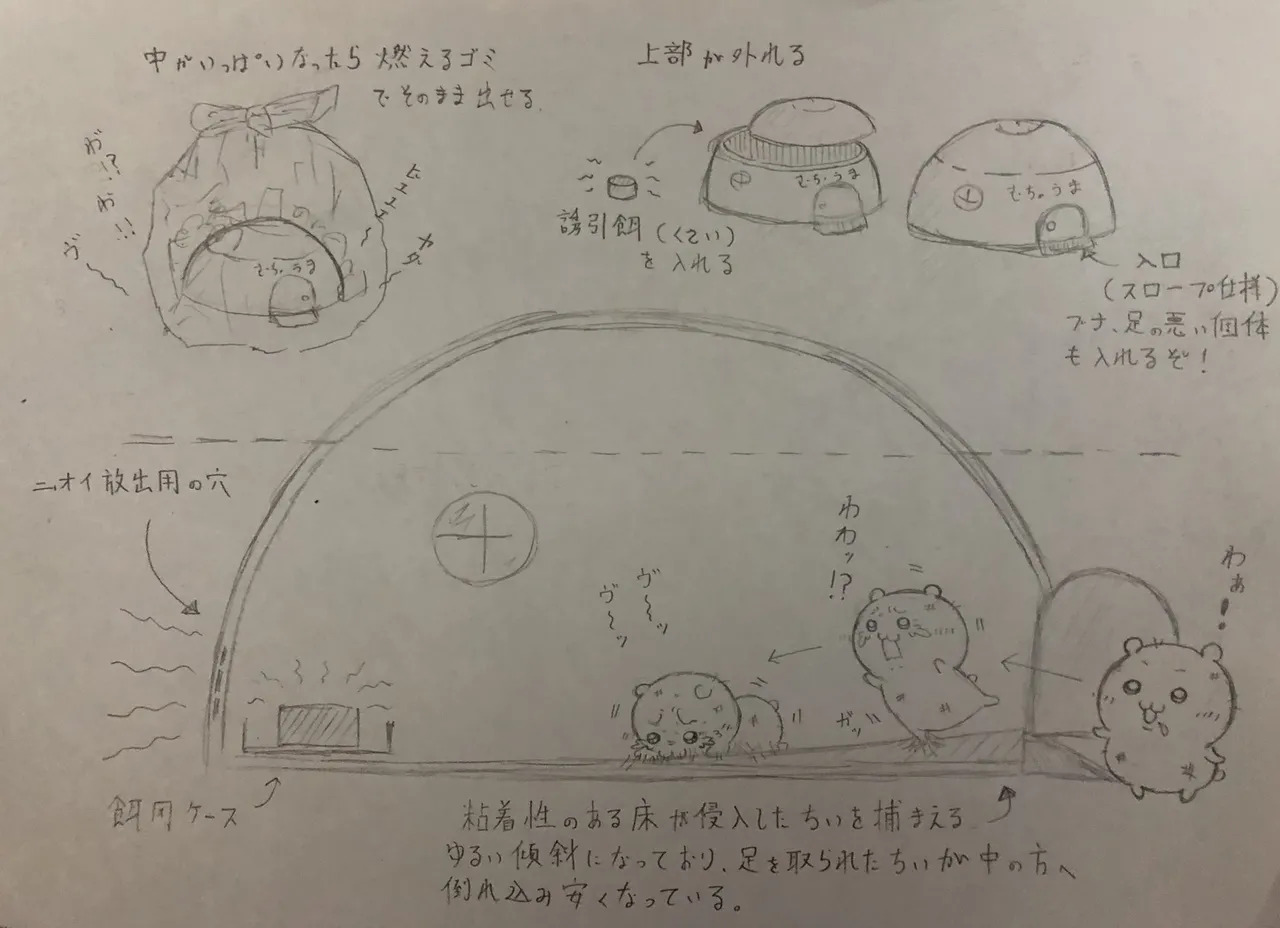 中がいっぱいなったら燃えるゴミ
でそのまま出せる.
わ!?
わ!!
ヴ〜
む.ちぅうま
上部が外れる
誘引餌(くさい)
を入れる
む.ちぅうま
む.ちゅうま
入口
(スロープ仕様)
ブナ、足の悪い個体
も入れるぞ!
ニオイ放出用の穴
ヴ〜ッ
ヴ〜ッ
わわッ!?
ガッ
わぁ!
餌用ケース
粘着性のある床が侵入したちいを捕まえる
ゆるい傾斜になっており、足を取られたちいが中の方へ
倒れ込み安くなっている。